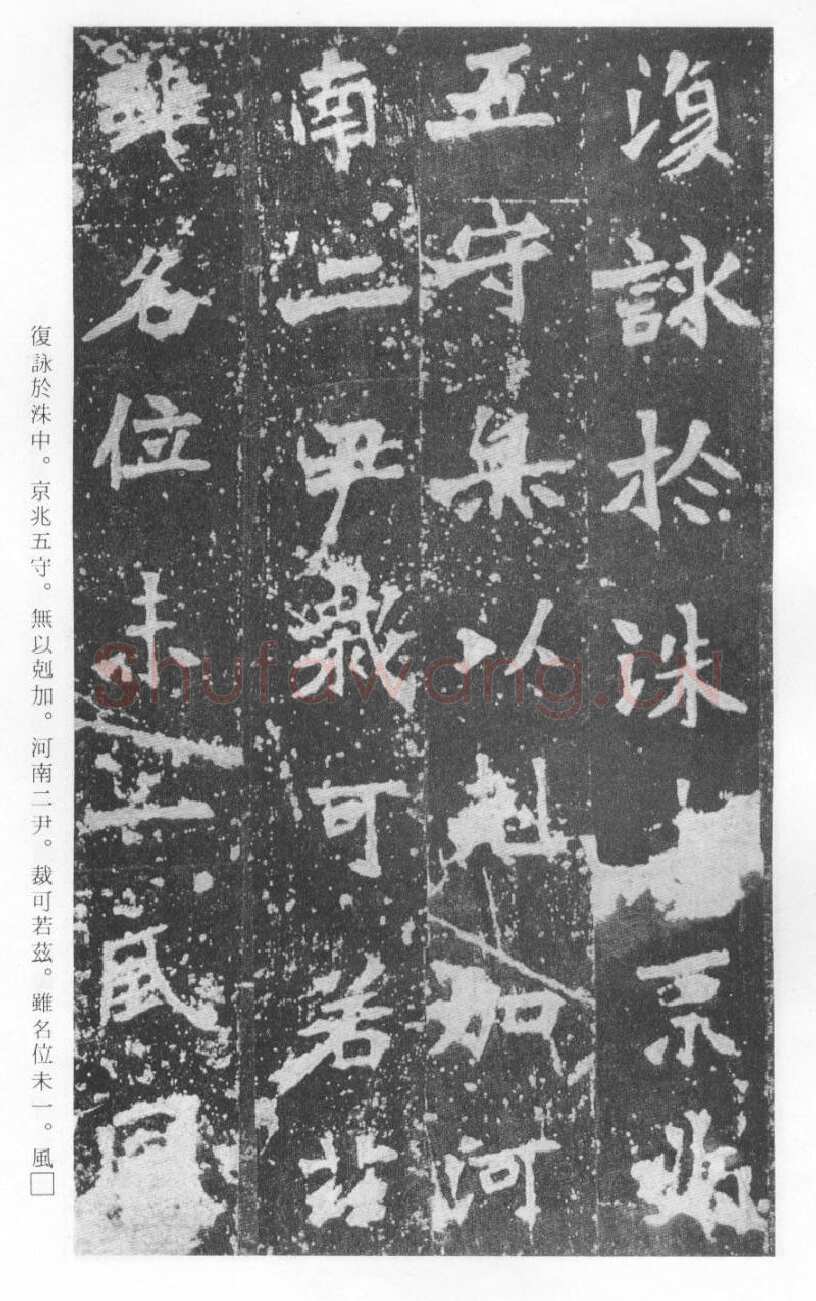 復詠於洙中京兆
五守無以剋加河
南二尹裁可若茲
雖名位未一風
復詠於洙中。京兆五守。無以剋加。河南二尹。裁可若茲。雖名位未一。風□
Shufawang.CN